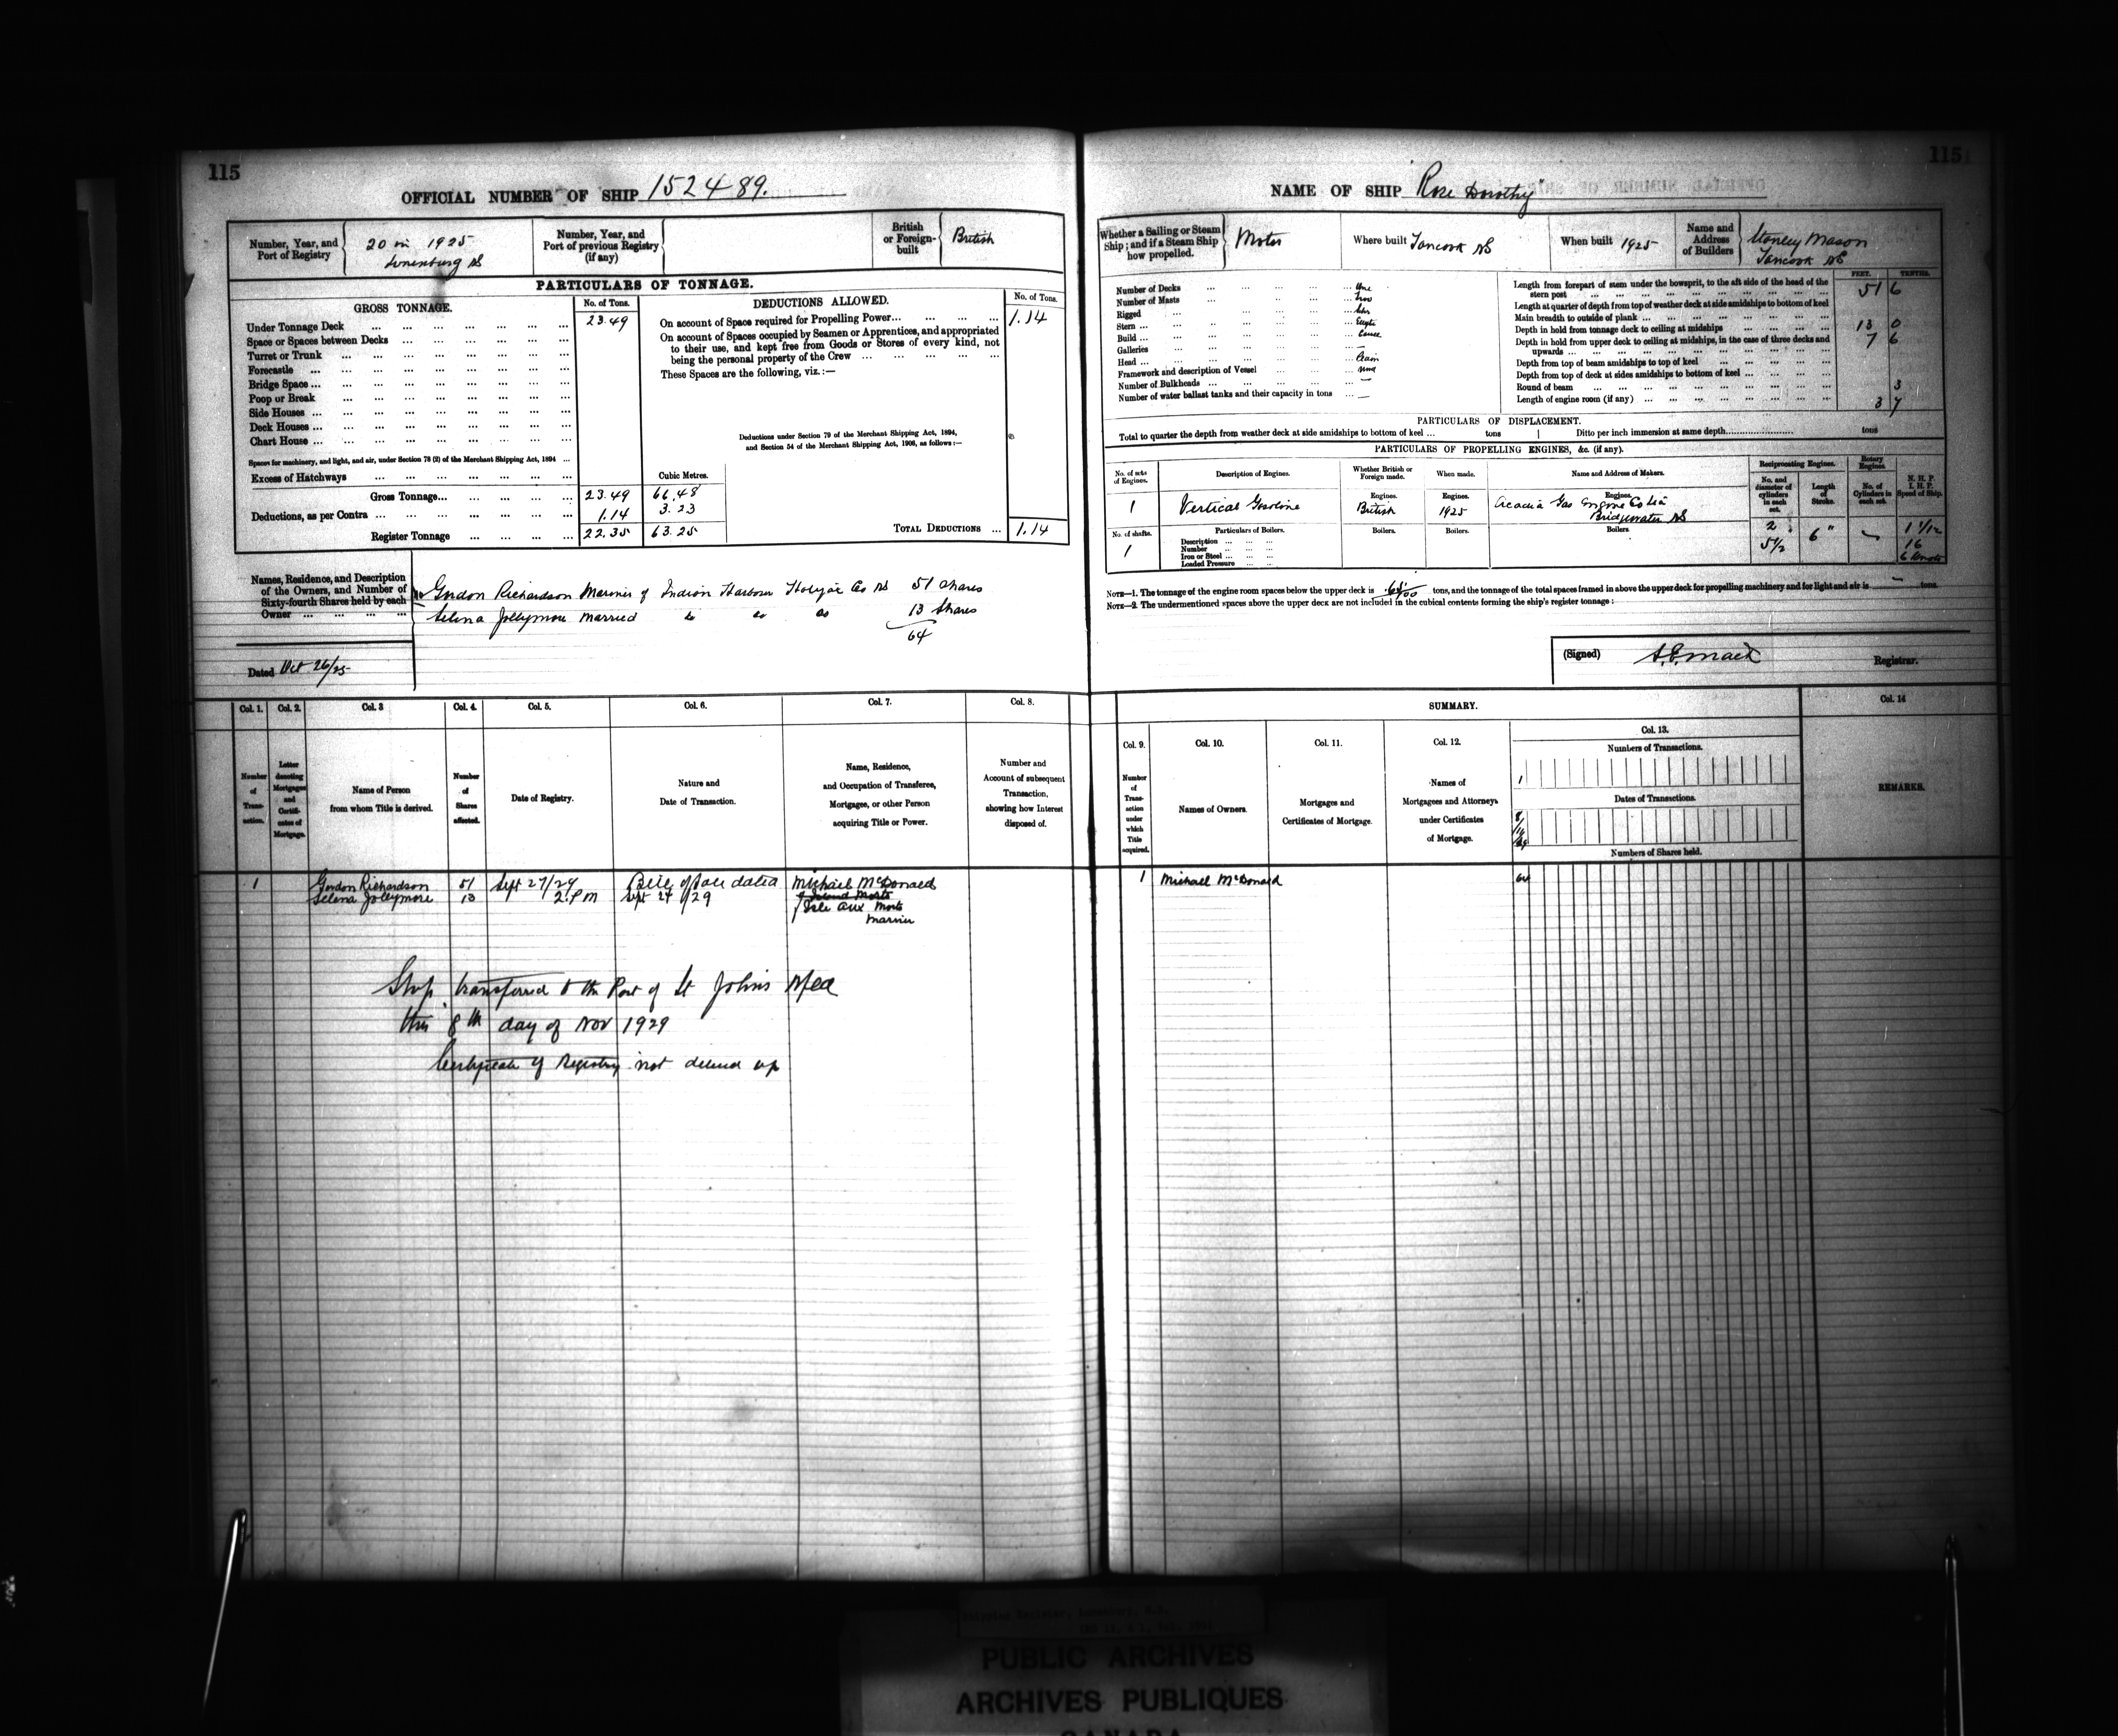 115
OFFICIAL NUMBER OF SHIP 152489.
Number, Year, and Port of Registry
20 in 1925
Lunenburg NS
Number, Year, and Port of previous Registry (if any)
British or Foreign-built
British
PARTICULARS OF TONNAGE.
GROSS TONNAGE.
No. of Tons.
DEDUCTIONS ALLOWED.
No. of Tons.
Under Tonnage Deck ... 23.49
Space or Spaces between Decks ...
Turret or Trunk ...
Forecastle ...
Bridge Space ...
Poop or Break ...
Side Houses ...
Deck Houses ...
Chart House ...
Spaces for machinery, and light, and air, under Section 78 (2) of the Merchant Shipping Act, 1894 ...
Excess of Hatchways ...
Cubic Metres.
Gross Tonnage... 23.49 66.48
Deductions, as per Contra ... 1.14 3.23
Register Tonnage ... 22.35 63.25
On account of Space required for Propelling Power... 1.14
On account of Spaces occupied by Seamen or Apprentices, and appropriated
to their use, and kept free from Goods or Stores of every kind, not
being the personal property of the Crew ...
These Spaces are the following, viz.:—
Deductions under Section 79 of the Merchant Shipping Act, 1894,
and Section 54 of the Merchant Shipping Act, 1906, as follows:—
TOTAL DEDUCTIONS ... 1.14
Names, Residence, and Description
of the Owners, and Number of
Sixty-fourth Shares held by each
Owner ...
Gordon Richardson Mariner of Indian Harbour Halifax Co NS 51 shares
Selena Jollymore married do do do 13 shares
64
Dated Oct 26/25
Col. 1. Col. 2. Col. 3 Col. 4. Col. 5. Col. 6. Col. 7. Col. 8.
Number of Transaction.
Letter denoting Mortgages and Certificates of Mortgage.
Name of Person from whom Title is derived.
Number of Shares affected.
Date of Registry.
Nature and Date of Transaction.
Name, Residence, and Occupation of Transferee, Mortgagee, or other Person acquiring Title or Power.
Number and Account of subsequent Transaction, showing how Interest disposed of.
1 Gordon Richardson 51 Sept 27/29 Bill of Sale dated Michael McDonald
Selena Jollymore 13 2. PM Sept 24/29
of Isle aux Morts
Mariner
Ship transferred to the Port of St Johns Nfld
this 8th day of Nov 1929
Certificate of Registry not delivered up
115
NAME OF SHIP "Rose Dorothy"
Whether a Sailing or Steam Ship; and if a Steam Ship how propelled.
Motor
Where built Tancook NS
When built 1925
Name and Address of Builders
Stanley Mason
Tancook NS
FEET. TENTHS.
Number of Decks ... One
Number of Masts ... two
Rigged ... Schr
Stern ...
Build ... Carvel
Galleries ... —
Head ...
Framework and description of Vessel ...
Number of Bulkheads ... —
Number of water ballast tanks and their capacity in tons ... —
Length from forepart of stem under the bowsprit, to the aft side of the head of the
stern post ... 51 6
Length at quarter of depth from top of weather deck at side amidships to bottom of keel
Main breadth to outside of plank ... 13 0
Depth in hold from tonnage deck to ceiling at midships ... 7 6
Depth in hold from upper deck to ceiling at midships, in the case of three decks and
upwards ...
Depth from top of beam amidships to top of keel ...
Depth from top of deck at sides amidships to bottom of keel ...
Round of beam ... 3
Length of engine room (if any) ... 3 7
PARTICULARS OF DISPLACEMENT.
Total to quarter the depth from weather deck at side amidships to bottom of keel ... tons
Ditto per inch immersion at same depth... tons
PARTICULARS OF PROPELLING ENGINES, &c. (if any).
No. of sets of Engines.
Description of Engines.
Whether British or Foreign made.
When made.
Name and Address of Makers.
Reciprocating Engines.
Rotary Engines.
No. and diameter of cylinders in each set.
Length of Stroke.
No. of Cylinders in each set.
N. H. P. I. H. P. Speed of Ship.
1
Vertical Gasoline
Engines. British
Engines. 1925
Engines. Acadia Gas Engine Co Ltd
Bridgewater NS
No. of shafts. 1
Particulars of Boilers.
Description ...
Number ...
Iron or Steel ...
Loaded Pressure ...
Boilers. Boilers. Boilers.
2
5 1/2
6"
1 1/12
16
6 Knots
NOTE—1. The tonnage of the engine room spaces below the upper deck is tons, and the tonnage of the total spaces framed in above the upper deck for propelling machinery and for light and air is — tons.
NOTE—2. The undermentioned spaces above the upper deck are not included in the cubical contents forming the ship's register tonnage:
(Signed) Mack Registrar.
SUMMARY.
Col. 9. Col. 10. Col. 11. Col. 12. Col. 13. Col. 14
Number of Transaction under which Title acquired.
Names of Owners.
Mortgages and Certificates of Mortgage.
Names of Mortgagees and Attorneys under Certificates of Mortgage.
Numbers of Transactions.
1
Dates of Transactions.
Numbers of Shares held.
REMARKS.
1 Michael McDonald 64
PUBLIC ARCHIVES
ARCHIVES PUBLIQUES
CANADA